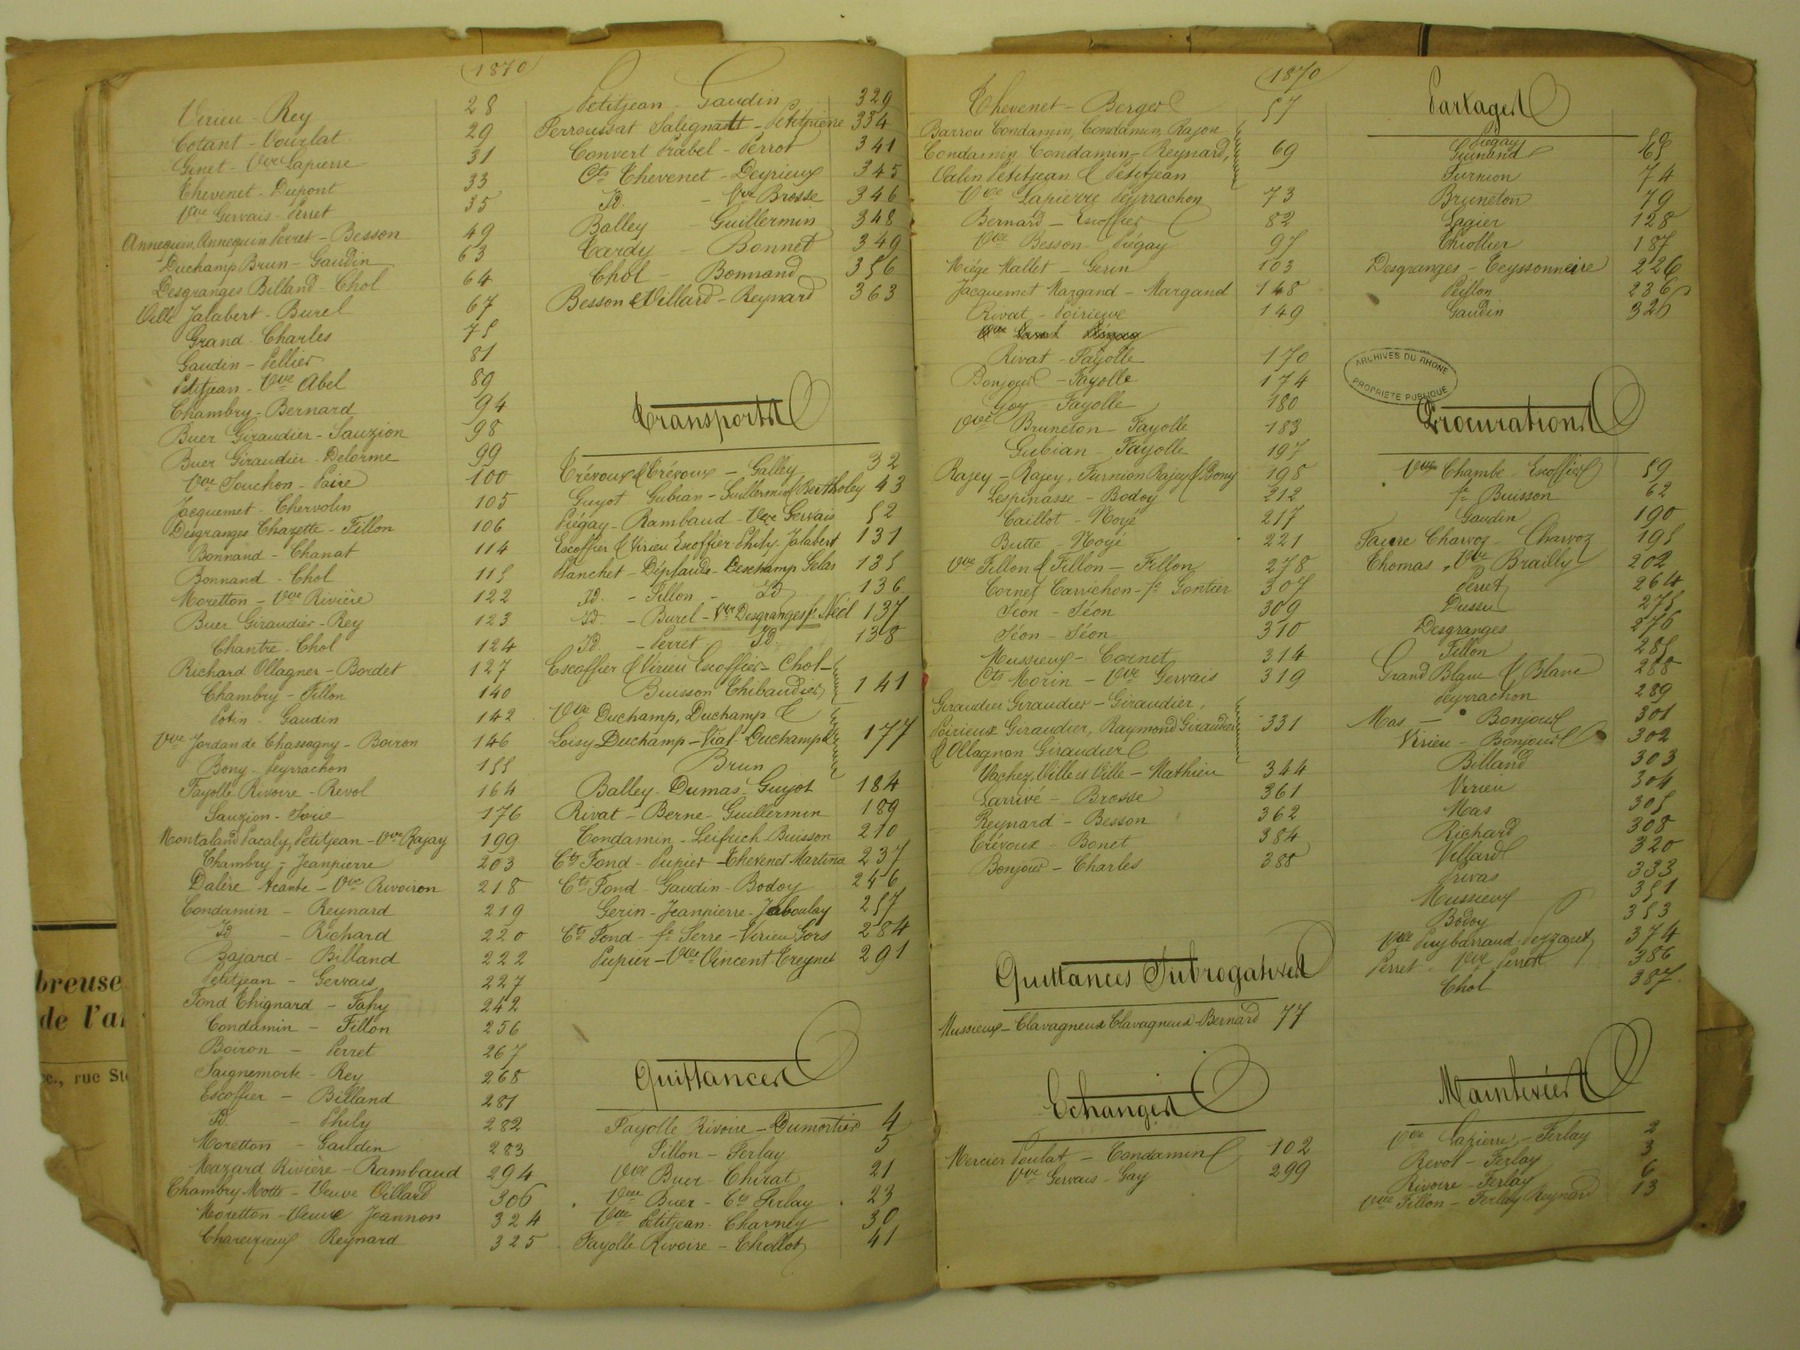 1870
Virieu - Rey 28
Cotant - Vourlat 29
Ginet - Vve Lapierre 31
Thevenet - Dupont 33
Vve Gervais - Perret 35
Annequin, Annequin Perret - Besson 49
Duchamp Brun - Gaudin 63
Desgranges Billand - Chol 64
Ville Jalabert - Burel 67
Grand - Charles 75
Gaudin - Pellier 81
Petitjean - Vve Abel 89
Chambry - Bernard 94
Buer Giraudier - Sauzion 98
Buer Giraudier - Delorme 99
Vve Souchon - Paire 100
Jacquemet - Chervolin 105
Desgranges Chazotte - Fillon 106
Bonnand - Chanat 114
Bonnand - Chol 115
Moretton - Vve Rivière 122
Buer Giraudier - Rey 123
Chantre - Chol 124
Richard Ollagner - Bordet 127
Chambry - Fillon 140
Potin - Gaudin 142
Vve Jordan de Chassagny - Boiron 146
Bony - Peyrachon 155
Fayolle Rivoire - Revol 164
Sauzion - Poire 176
Montaland Pacaly, Petitjean - Vve Rajay 199
Chambry - Jeanpierre 203
Dalère - Vve Rivoiron 218
Condamin - Reynard 219
Id - Richard 220
Bajard - Billand 222
Petitjean - Gervais 227
Fond Thignard - Fahy 242
Condamin - Fillon 256
Boiron - Perret 267
Saignemorte - Rey 268
Escoffier - Billand 281
Id. - Phily 282
Moretton - Gaudin 283
Mazard Rivière - Rambaud 294
Chambry Motte - Veuve Villard 306
Moretton - Veuve Jeannon 324
Charezieux Reynard 325
Petitjean - Gaudin 329
Perroussat Salignat - Petitpierre 334
Convert Prabel - Perrot 341
Cts Thevenet - Deyrieux 345
Id. - Vve Brosse 346
Balley - Guillermin 348
Tardy - Bonnet 349
Chol - Bonnand 356
Besson & Villard - Reynard 363
Transports
Trévoux & Trévoux - Galley 32
Guyot Gubian - Guillermin & Bertholey 43
Piégay - Rambaud - Vve Gervais 52
Escoffier & Virieu Escoffier Phily - Jalabert 131
Planchet - Déplaude - Deschamp Gelas 135
Id. - Fillon - Id. 136
Id. - Burel - Vve Desgranges fe Néel 137
Id. - Perret Id. 138
Escoffier & Virieu Escoffier - Chol -
Buisson Thibaudier 141
Vve Duchamp, Duchamp &
Loisy Duchamp - Viat - Duchamp &
Brun 177
Balley - Dumas - Guyot 184
Rivat - Berne - Guillermin 189
Condamin - Leifrich Buisson 210
Cts Fond - Pupier - Thevenet Martina 237
Cts Fond - Gaudin - Bodoy 246
Gerin - Jeanpierre - Jaboulay 257
Cts Fond - fe Serre - Virieu Gors 284
Pupier - Vve Vincent Treynet 291
Quittances
Fayolle Rivoire - Dumortier 4
Fillon - Ferlay 5
Vve Buer - Chirat 21
Vve Buer - Cts Ferlay 23
Vve Petitjean - Charmey 30
Fayolle Rivoire - Chollot 41
1870
Thevenet - Berger 57
Barrou Condamin, Condamin Rajon
Condamin Condamin - Reynard, 69
Valin Petitjean & Petitjean
Vve Lapierre Peyrrachon 73
Bernard - Escoffier 82
Vve Besson - Piégay 97
Miége Mallet - Gerin 103
Jacquemet Margand - Margand 148
Rivat - Poirieux 149
Rivat - Fayolle 170
Bonjour - Fayolle 174
Goy - Fayolle 180
Vve Bruneton - Fayolle 183
Gubian - Fayolle 197
Rajey - Rajey, Furnion Rajey & Bony 198
Lespinasse - Bodoy 212
Caillot - Noyé 217
Butte - Noyé 221
Vve Fillon & Fillon - Fillon 278
Cornet Carrichon - fe Gontier 307
Séon - Séon 309
Séon - Séon 310
Mussieux - Cornet 314
Cts Morin - Vve Gervais 319
Giraudier Giraudier - Giraudier,
Poirieux Giraudier, Raymond Giraudier 331
& Ollagnon Giraudier
Vachez, Ville et Ville - Mathieu 344
Larrivé - Brosse 361
Reynard - Besson 362
Trévoux - Bonet 384
Bonjour - Charles 388
Quittances Subrogatives
Mussieux - Clavagneux Clavagneux - Bernard 77
Echanges
Mercier Poulat - Condamin 102
Vve Gervais - Gay 299
Partages
Piégay
Guinand 65
Furnion 74
Bruneton 79
Lagier 128
Thiollier 187
Desgranges - Teyssonniere 226
Peillon 236
Gaudin 326
ARCHIVES DU RHONE
PROPRIETE PUBLIQUE
Procurations
Vve Chambe - Escoffier 59
fe Buisson 62
Gaudin 190
Faure Charvoz - Charvoz 195
Thomas, Vve Brailly 202
Perret 264
Dussu 275
Desgranges 276
Fillon 285
Grand Blanc & Blanc 288
Peyrrachon 289
Mas - Bonjour 301
Virieu - Bonjour 302
Billand 303
Virieu 304
Mas 305
Richard 308
Villard 320
Privas 333
Mussieux 351
Bodoy 353
Vve Puybarraud 374
Perret - Vve Perret 386
Chol 387
Mainlevées
Vve Lapierre - Ferlay 2
Revol - Ferlay 3
Rivoire - Ferlay 6
Vve Fillon - Ferlay Reynard 13
breuse
de l'a
rue St